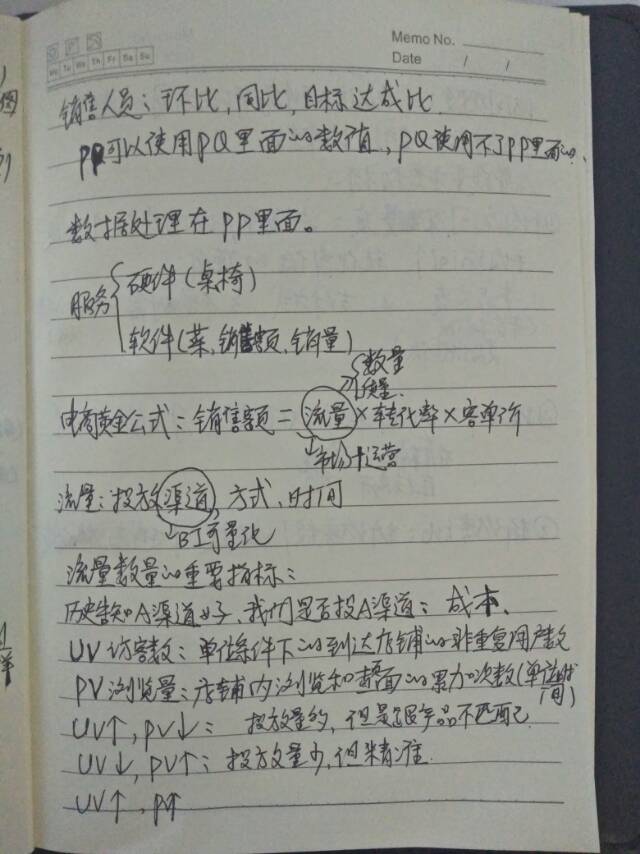 Memo No.
Mo Tu We Th Fr Sa Su
Date / /
销售人员：环比，同比，目标达成比
PP可以使用PQ里面的数值，PQ使用不了PP里面的.
数据处理在PP里面。
服务
硬件(桌椅)
软件(菜,销售额,销量)
数量
质量
电商黄金公式：销售额=流量×转化率×客单价
市场+运营
流量：投放渠道，方式，时间
BI可量化
流量数量的重要指标：
历史告知A渠道好，我们是否投A渠道：成本.
UV访客数：单位条件下的到达店铺的非重复用户数
PV浏览量：店铺内浏览和查看页面的累加次数(单位时
间)
UV↑,PV↓：投放量的,但是产品不匹配
UV↓,PV↑：投放量少,但精准.
UV↑,P↑